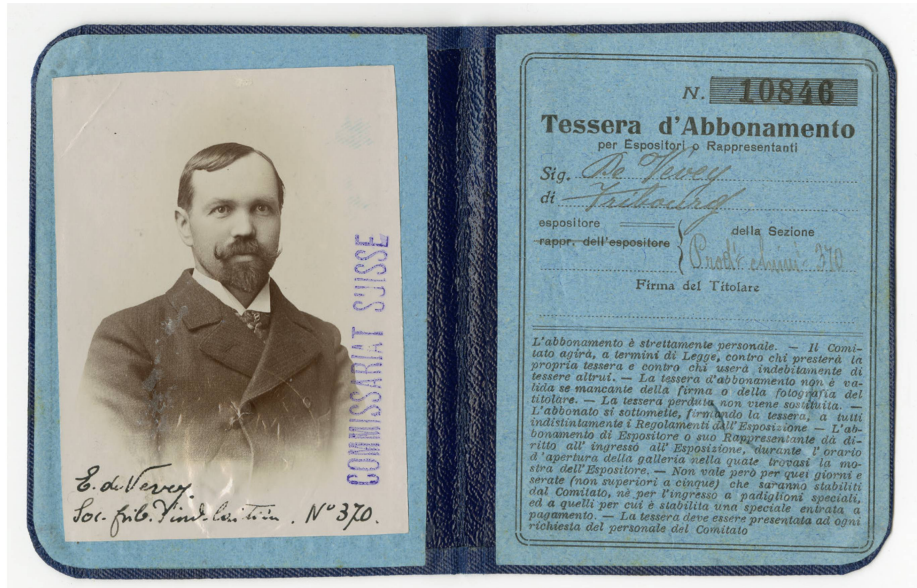 E. de Vevey
Soc. frib. d'industrie laitière. N° 370.
COMMISSARIAT SUISSE
N. 10846
Tessera d'Abbonamento
per Espositori o Rappresentanti
Sig. De Vevey
di Fribourg
espositore
rappr. dell'espositore
della Sezione
370
Firma del Titolare
L'abbonamento è strettamente personale. — Il Comi-
tato agirà, a termini di Legge, contro chi presterà la
propria tessera e contro chi userà indebitamente di
tessere altrui. — La tessera d'abbonamento non è va-
lida se mancante della firma o della fotografia del
titolare. — La tessera perduta non viene sostituita. —
L'abbonato si sottomette, firmando la tessera, a tutti
indistintamente i Regolamenti dell'Esposizione — L'ab-
bonamento di Espositore o suo Rappresentante dà di-
ritto all' ingresso all' Esposizione, durante l'orario
d'apertura della galleria nella quale trovasi la mo-
stra dell'Espositore. — Non vale però per quei giorni e
serate (non superiori a cinque) che saranno stabiliti
dal Comitato, nè per l'ingresso a padiglioni speciali,
ed a quelli per cui è stabilita una speciale entrata a
pagamento. — La tessera deve essere presentata ad ogni
richiesta del personale del Comitato